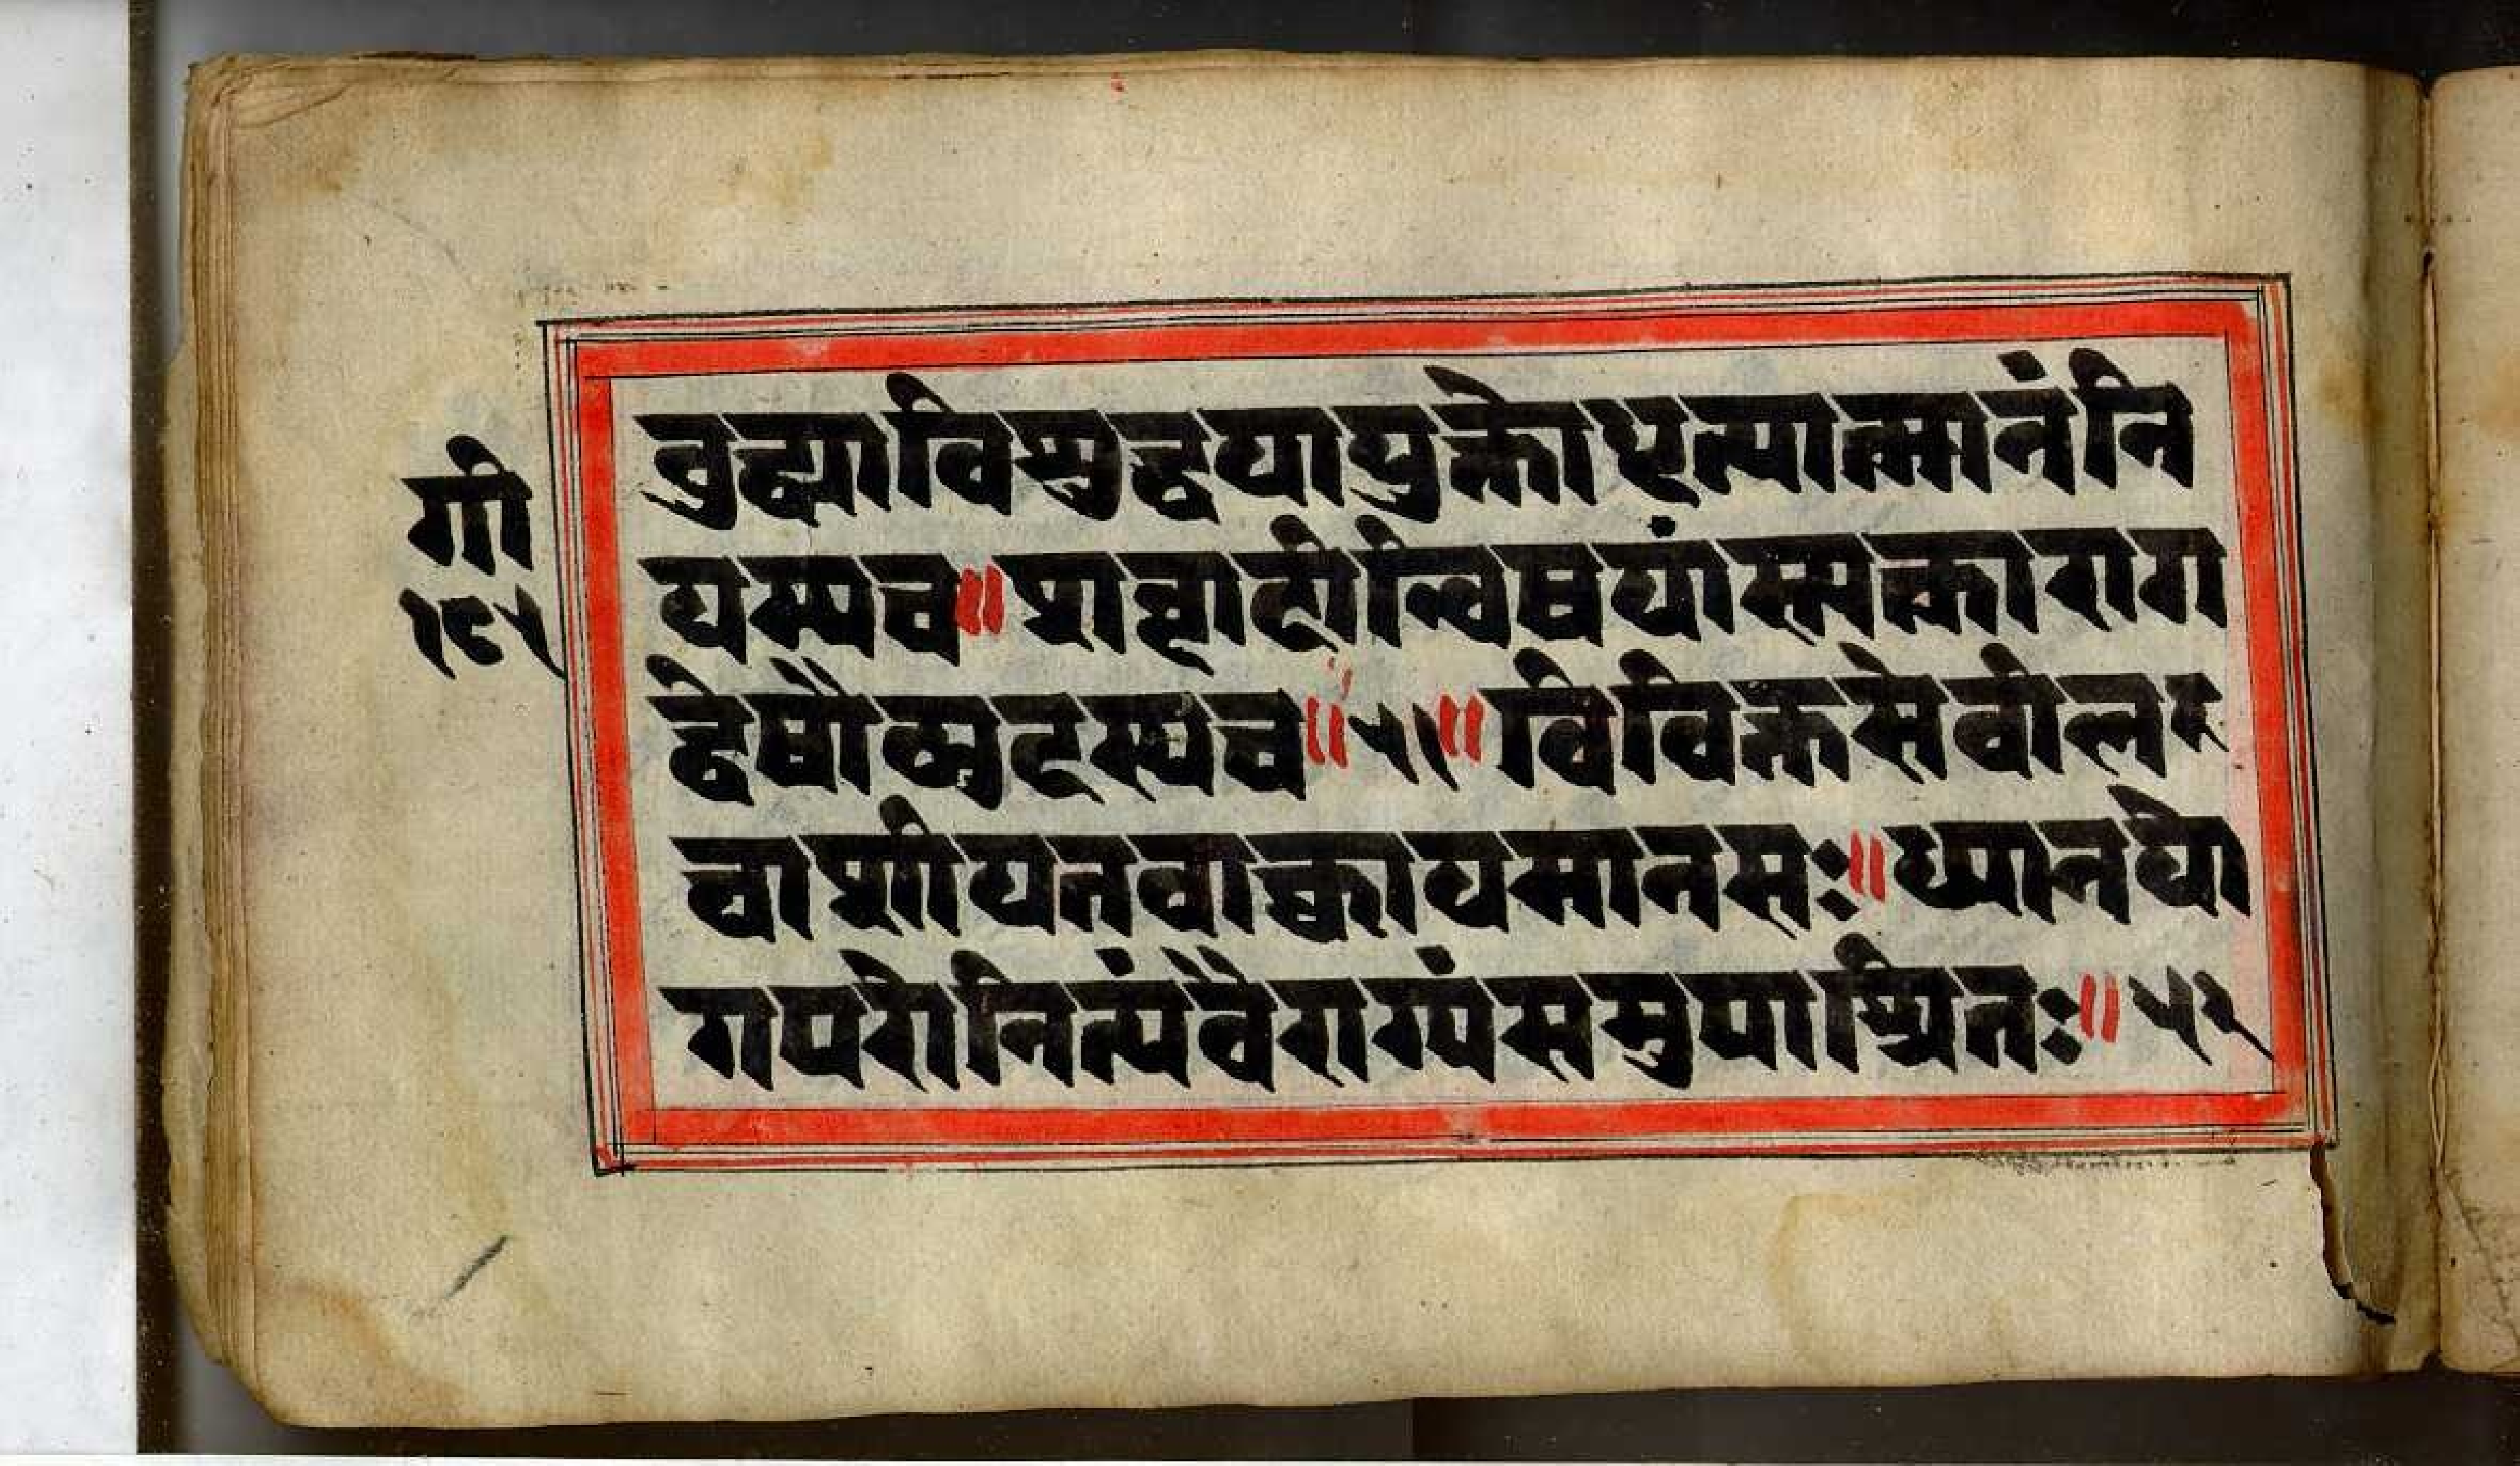 बुद्ध्याविशुद्धयायुक्तोधृत्यात्मानंनि
गी
यम्यच॥शब्दादीन्विषयांस्त्यक्त्वाराग
१८५
द्वेषौव्युदस्यच॥५१॥विविक्तसेवीलघ
वाशीयतवाक्कायमानसः॥ध्यानयो
गपरोनित्यंवैराग्यंसमुपाश्रितः॥५२